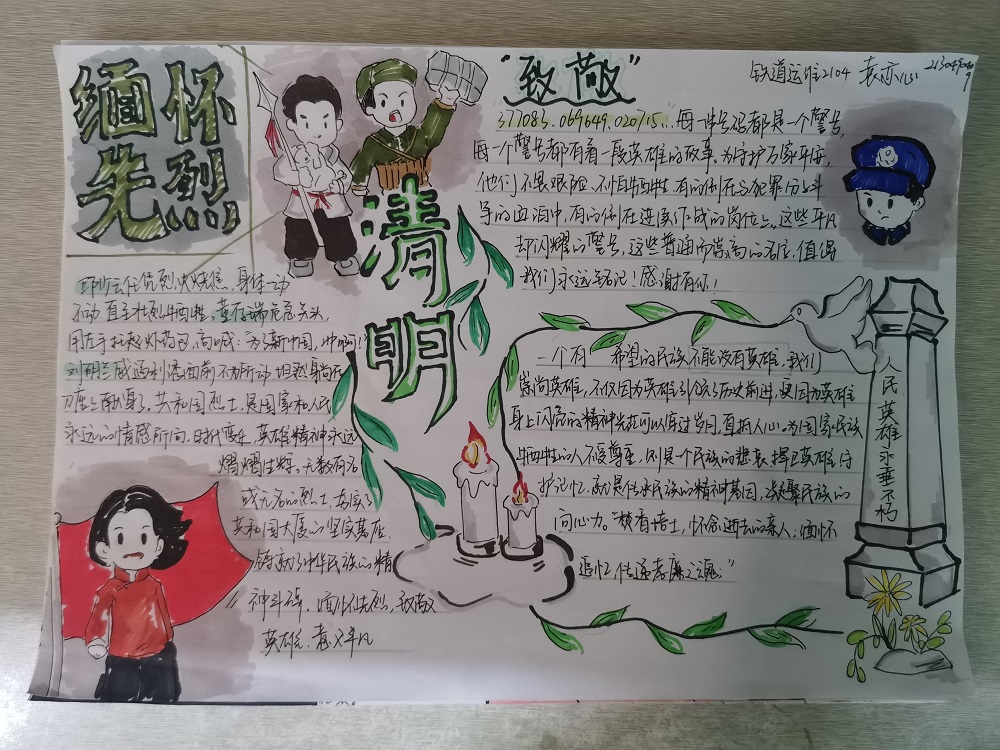 缅怀
先烈
清
明
"致敬"
铁道运输2104 袁亦心
377083.069649.020715... 每一串号码都是一个警号,
每一个警号都有着一段英雄的故事。为守护万家平安,
他们不畏艰险、不怕牺牲,有的倒在与犯罪分子斗
争的血泊中,有的倒在连续作战的岗位上。这些平凡
却闪耀的警号,这些普通而崇高的名字,值得
我们永远铭记!感谢有你!
邱少云任凭烈火烧焦,身体一动
不动直至壮烈牺牲。董存瑞危急关头,
用左手托起炸药包,高喊:为了新中国,冲啊!
刘胡兰威逼利诱面前不为所动坦然躺在
刀座上献身了。共和国烈士,是国家和人民
永远的情感所向,时代变迁,英雄精神永远
熠熠生辉。无数有名
或无名的烈士,夯实了
共和国大厦的坚实基座,
铸就了中华民族的精
神丰碑。缅怀先烈,致敬
英雄,意义非凡
一个有希望的民族不能没有英雄。我们
崇尚英雄,不仅因为英雄引领历史前进,更因为英雄
身上闪亮的精神光芒可以穿过岁月,直抵人心。为国家民族
牺牲的人不受尊重,则是一个民族的悲哀。捍卫英雄,守
护记忆,就是传承民族的精神基因,凝聚民族的
向心力。"核有培土,怀念逝去的亲人,缅怀
追忆,传递孝廉之魂。"
人民英雄永垂不朽